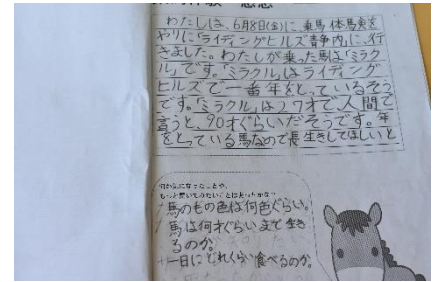 わたしは、6月8日(金)に乗馬体験を
やりに「ライディングヒルズ静内」に、行
きました。わたしが乗った馬は「ミラク
ル」です。「ミラクル」はライディング
ヒルズで一番年をとっているそう
です。「ミラクル」は27才で、人間で
言うと、90才ぐらいだそうです。年
をとっている馬なので長生きしてほしいと
馬のもの色は何色ぐらい。
馬は何才ぐらいまで生き
るのか。
一日にどれくらい食べるのか。